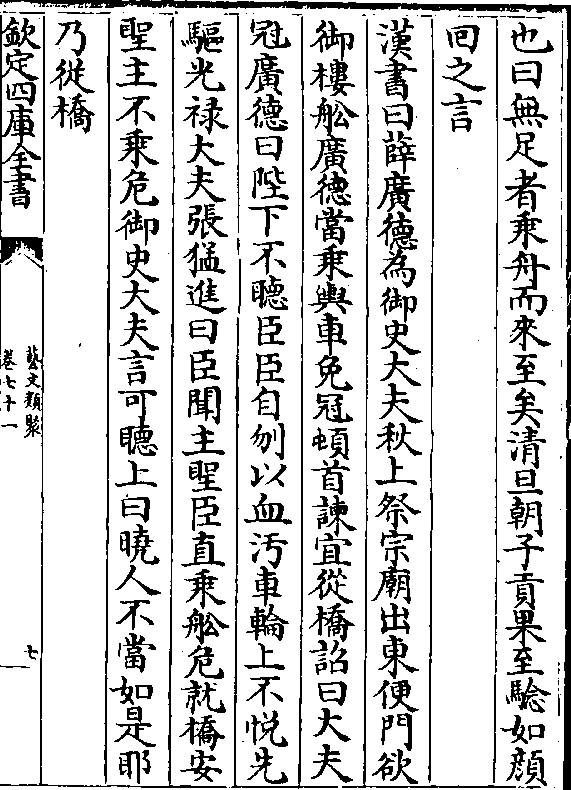 也曰無足者乘舟而來至矣清旦朝子貢果至驗如顔
回之言
漢書曰薛廣德為御史大夫秋上祭宗廟出東便門欲
御樓舩廣德當乘輿車免冠頓首諫宜從橋詔曰大夫
冠廣德曰陛下不聽臣臣自刎以血汚車輪上不悅先
驅光禄大夫張猛進曰臣聞主聖臣直乘舩危就橋安
聖主不乘危御史大夫言可聽上曰曉人不當如是耶
乃從橋
欽定四庫全書
藝文類聚
卷七十一
七